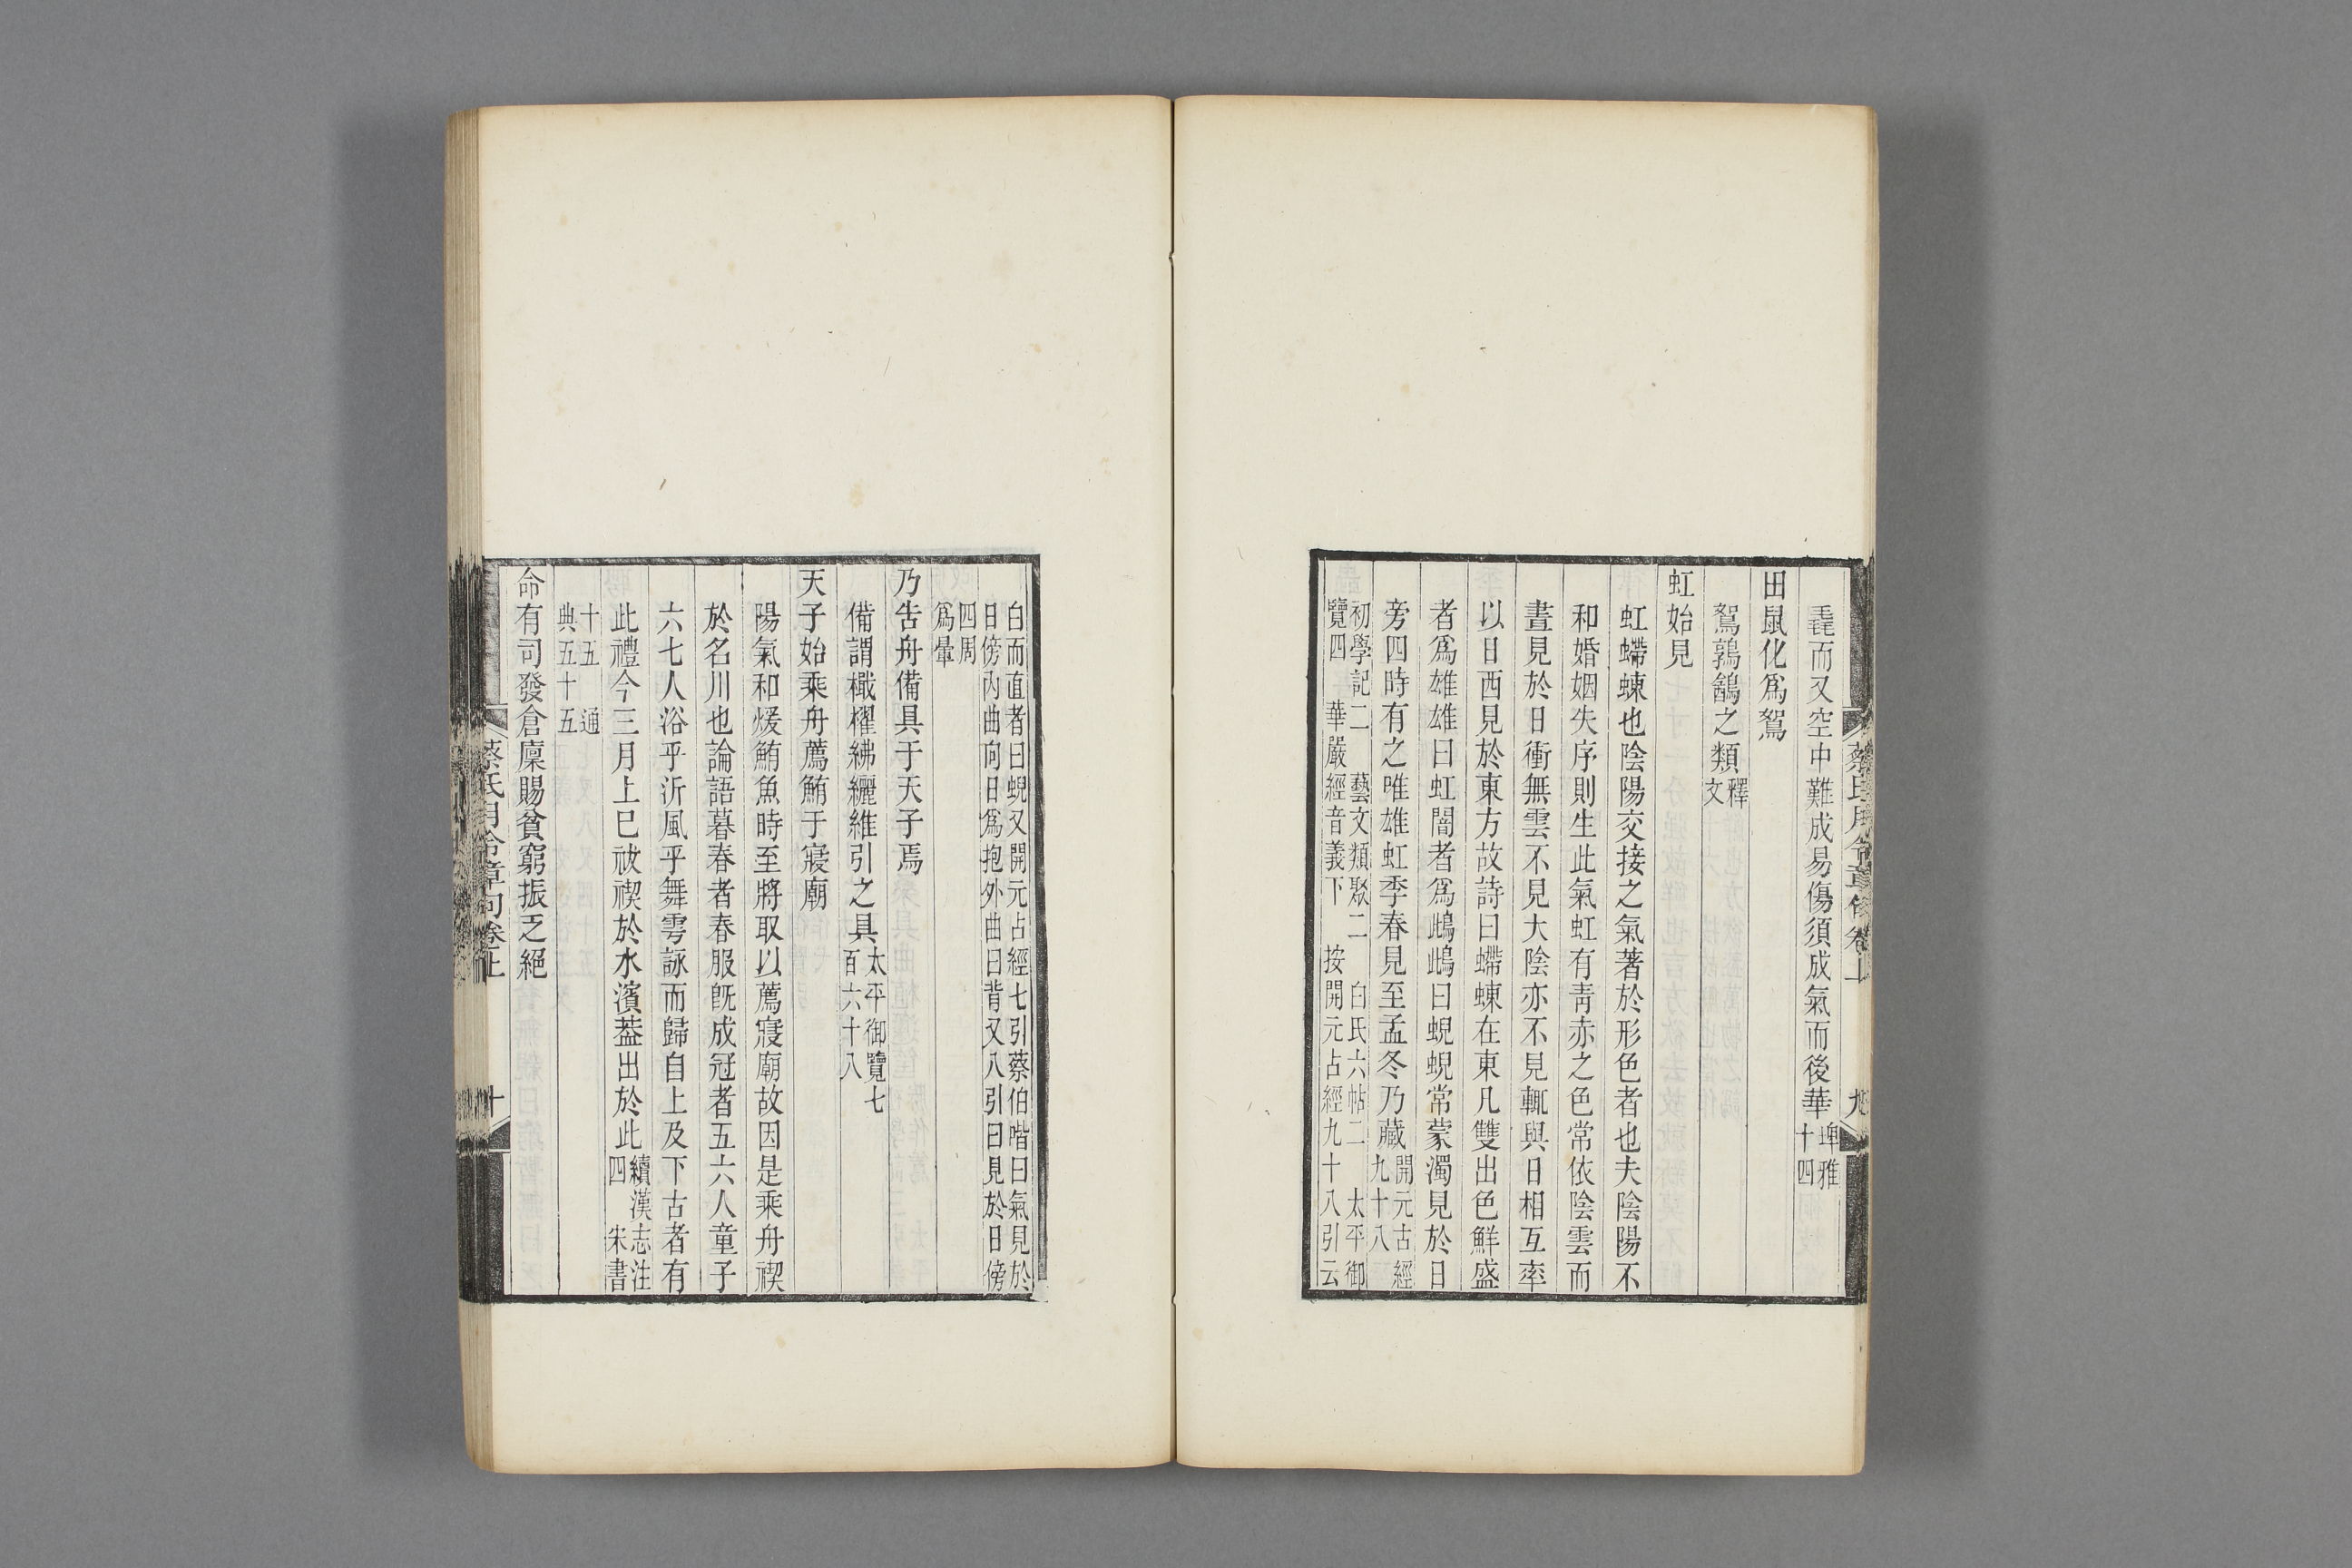 毳而又空中難成易傷須成氣而後華埤雅
十四
田鼠化爲鴽
鴽鶉鷂之類釋
文
虹始見
虹螮蝀也陰陽交接之氣著於形色者也夫陰陽不
和婚姻失序則生此氣虹有青赤之色常依陰雲而
晝見於日衝無雲不見大陰亦不見輒與日相互率
以日西見於東方故詩曰螮蝀在東凡雙出色鮮盛
者爲雄雄曰虹闇者爲鴟鴟曰蜺蜺常蒙濁見於日
旁四時有之唯雄虹季春見至孟冬乃藏開元古經
九十八
初學記二 藝文類聚二 白氏六帖二 太平御
覽四 華嚴經音義下 按開元占經九十八引云
蔡氏月令章句卷上 九
白而直者曰蜺又開元占經七引蔡伯喈曰氣見於
日傍內曲向日爲抱外曲曰背又八引曰見於日傍
四周
爲暈
乃告舟備具于天子焉
備謂檝櫂紼纚維引之具太平御覽七
百六十八
天子始乘舟薦鮪于寢廟
陽氣和煖鮪魚時至將取以薦寢廟故因是乘舟禊
於名川也論語暮春者春服旣成冠者五六人童子
六七人浴乎沂風乎舞雩詠而歸自上及下古者有
此禮今三月上巳祓禊於水濱葢出於此續漢志注
四 宋書
十五 通
典五十五
命有司發倉廩賜貧窮振乏絕
蔡氏月令章句卷上 十